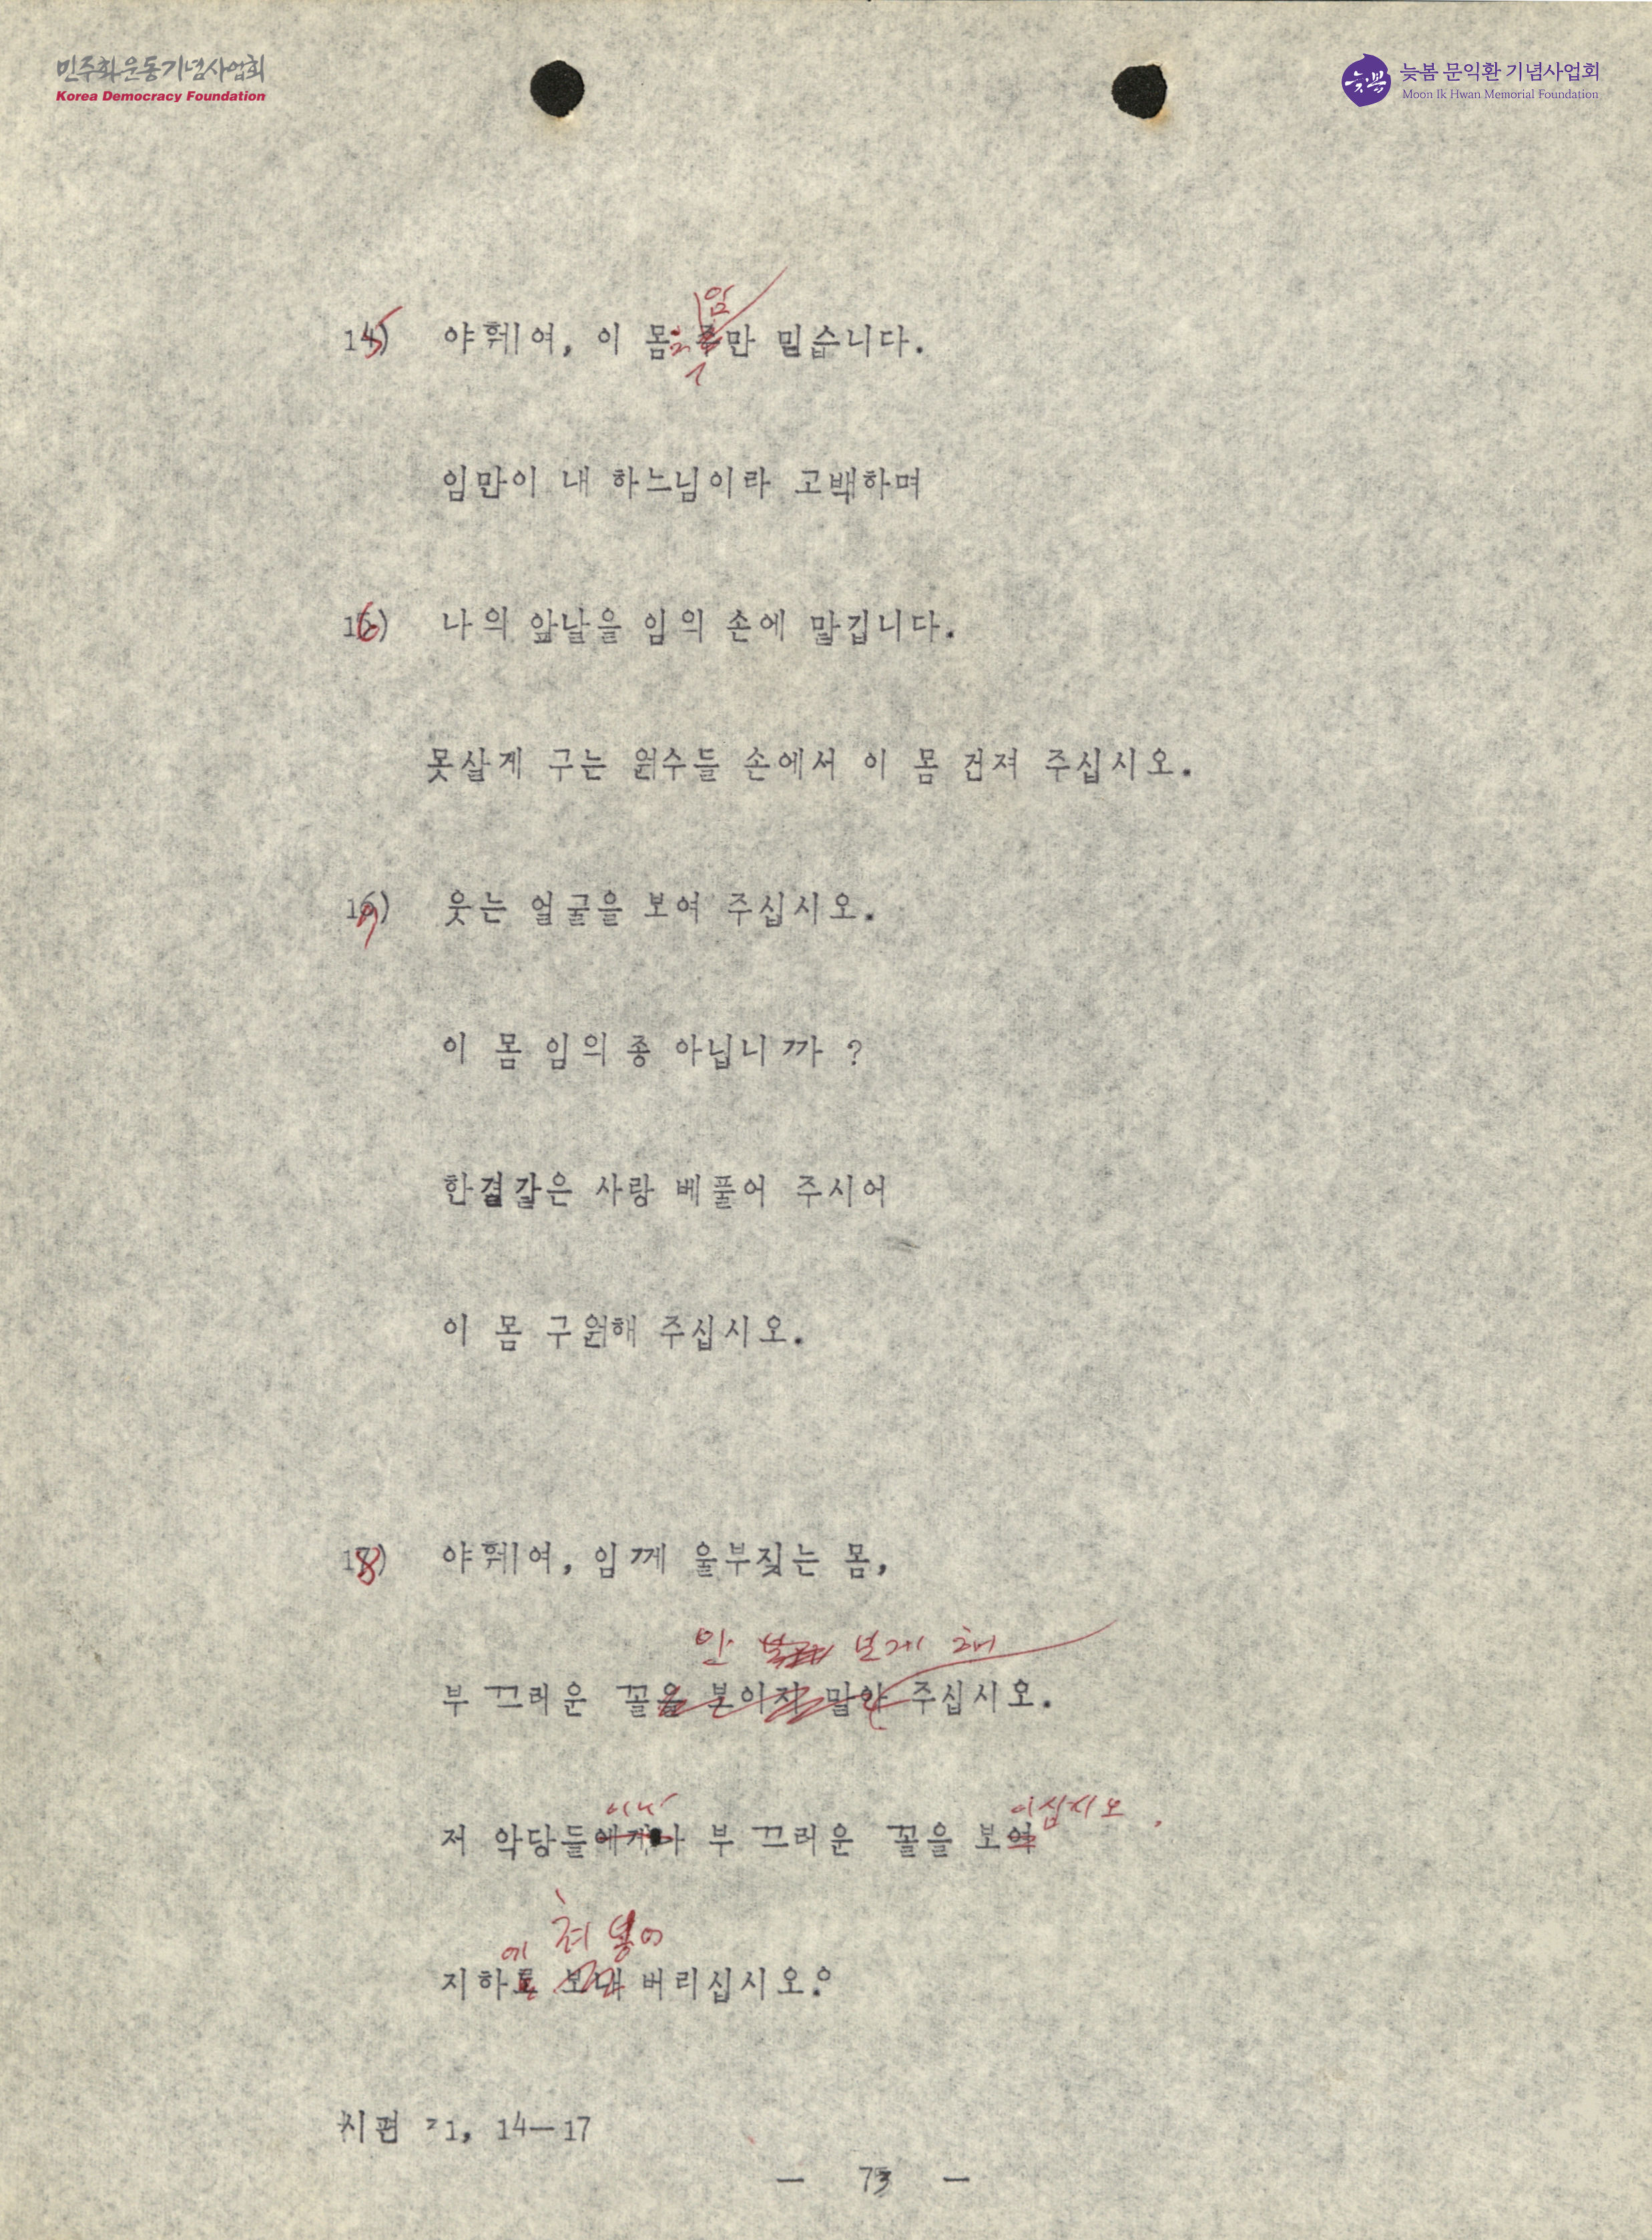 민주화운동기념사업회
Korea Democracy Foundation
늦봄
늦봄 문익환 기념사업회
Moon Ik Hwan Memorial Foundation
임
15) 야훼여, 이 몸은 주만 믿습니다.
임만이 내 하느님이라 고백하며
16) 나의 앞날을 임의 손에 맡깁니다.
못살게 구는 원수들 손에서 이 몸 건져 주십시오.
17) 웃는 얼굴을 보여 주십시오.
이 몸 임의 종 아닙니까 ?
한결같은 사랑 베풀어 주시어
이 몸 구원해 주십시오.
18) 야훼여, 임께 울부짖는 몸,
안 보게 해
부끄러운 꼴을 보이지 말아 주십시오.
이나 이십시오.
저 악당들에게나 부끄러운 꼴을 보여
에 처넣어
지하로 보내 버리십시오.
시편 31, 14—17
— 73 —